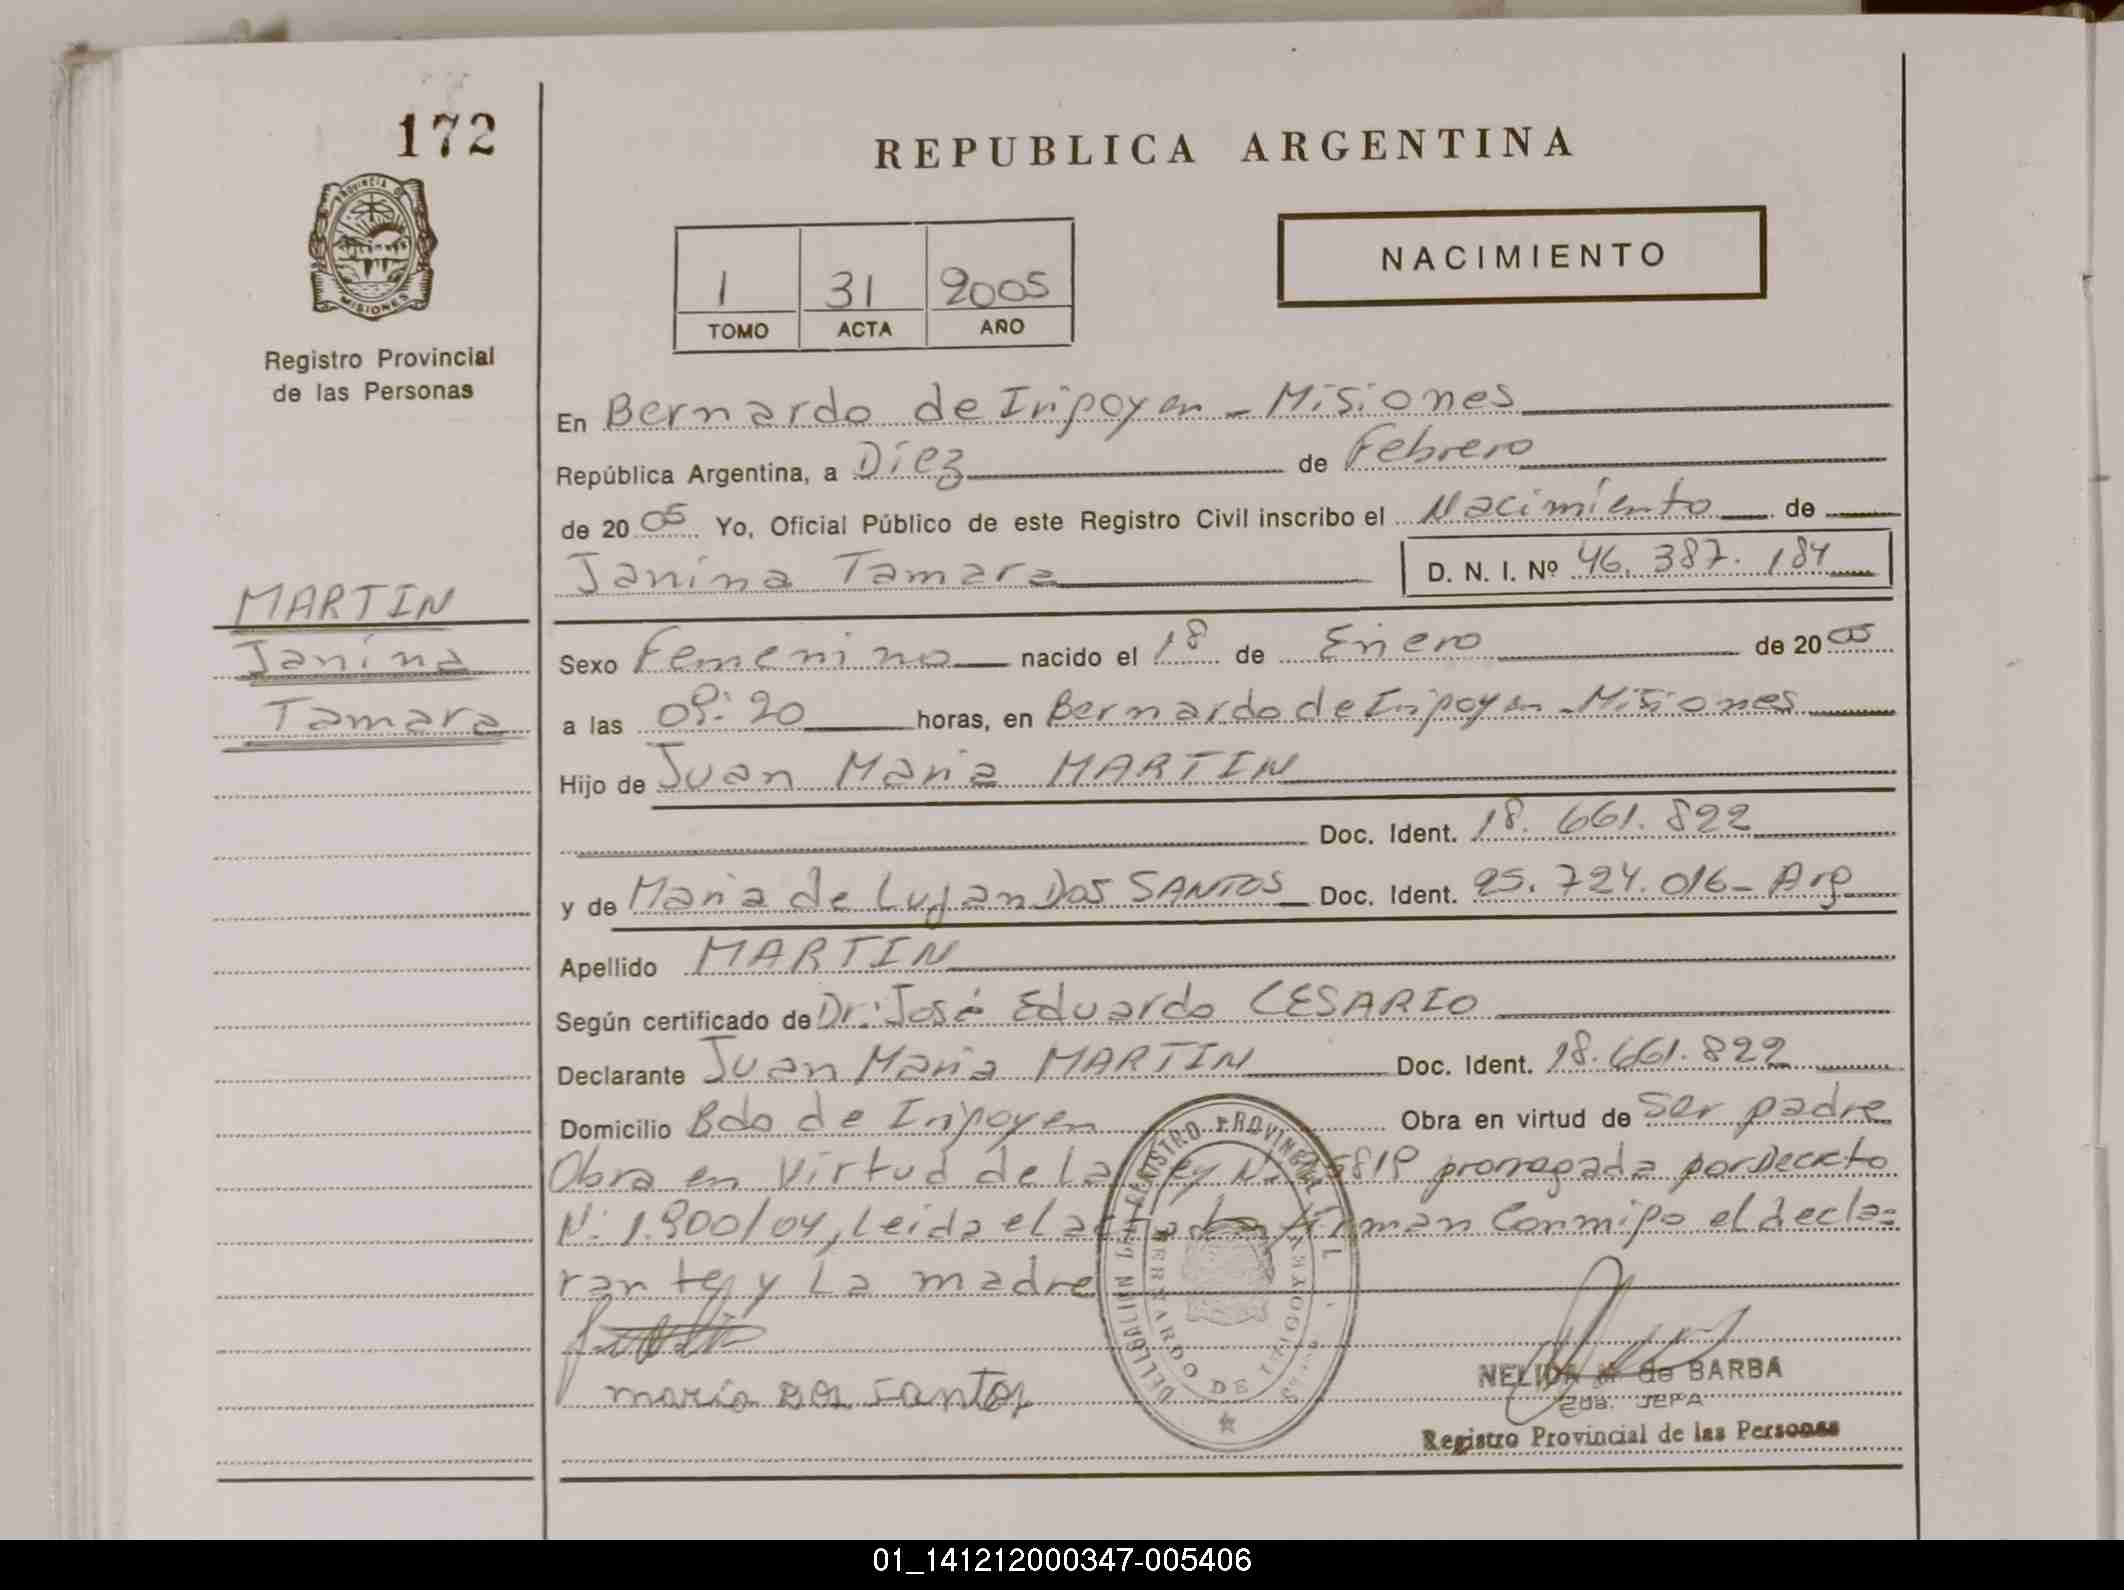 172
PROVINCIA DE
MISIONES
Registro Provincial
de las Personas
REPUBLICA ARGENTINA
NACIMIENTO
1 31 2005
TOMO ACTA AÑO
En Bernardo de Irigoyen - Misiones
República Argentina, a Diez de Febrero
de 2005 Yo, Oficial Público de este Registro Civil inscribo el Nacimiento de
Janina Tamara D. N. I. Nº 46.387.184
MARTIN
Janina
Tamara
Sexo Femenino nacido el 18 de Enero de 2005
a las 09:20 horas, en Bernardo de Irigoyen - Misiones
Hijo de Juan Maria MARTIN
Doc. Ident. 18.661.822
y de Maria de Lujan Dos SANTOS Doc. Ident. 25.724.016- Arg
Apellido MARTIN
Según certificado de Dr: José Eduardo CESARIO
Declarante Juan Maria MARTIN Doc. Ident. 18.661.822
Domicilio Bdo de Irigoyen Obra en virtud de Ser padre
Obra en Virtud de La Ley N: 25819 prorrogada por Decreto
N: 1.900/04, Leida el acta La firman Conmigo el decla-
rante, y La madre
maria dos santos
REGISTRO PROVINCIAL
BERNARDO DE IRIGOYEN
NELIDA de BARBA
2da. JEFA
Registro Provincial de las Personas
01_141212000347-005406